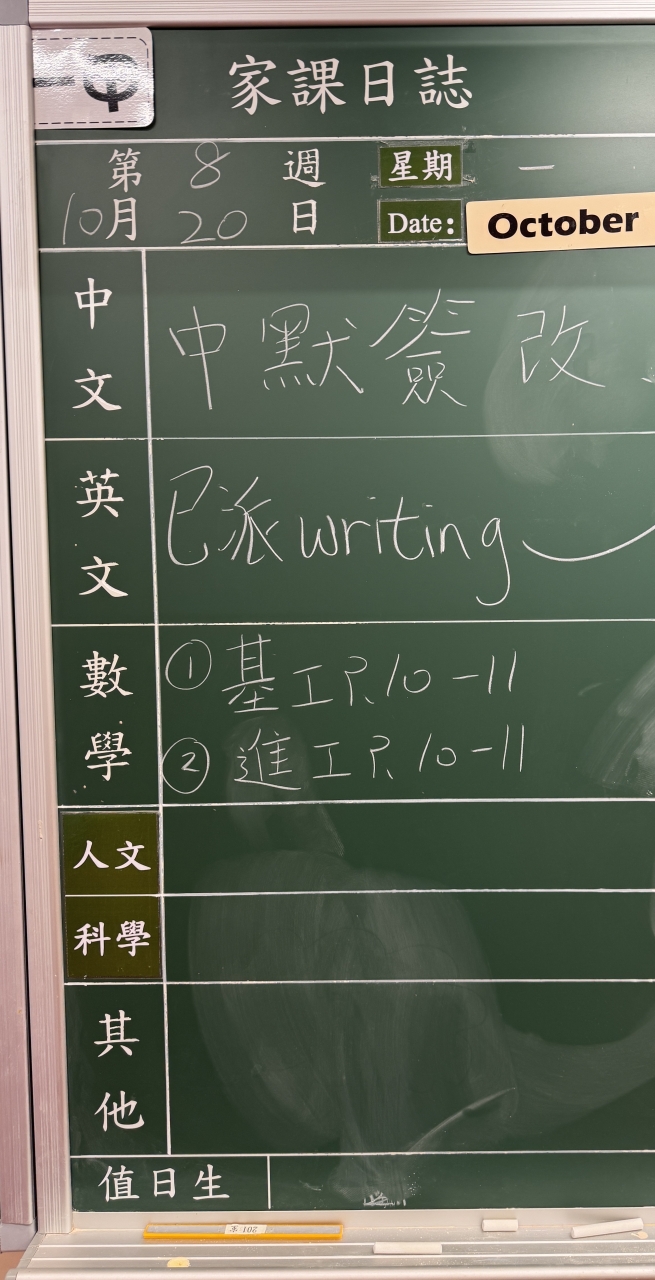 家課日誌
第 8 週 星期 一
10月 20 日 Date: October
中文 中默簽改、
英文 已派 writing
數學 ① 基工P.10-11
② 進工P.10-11
人文
科學
其他
值日生